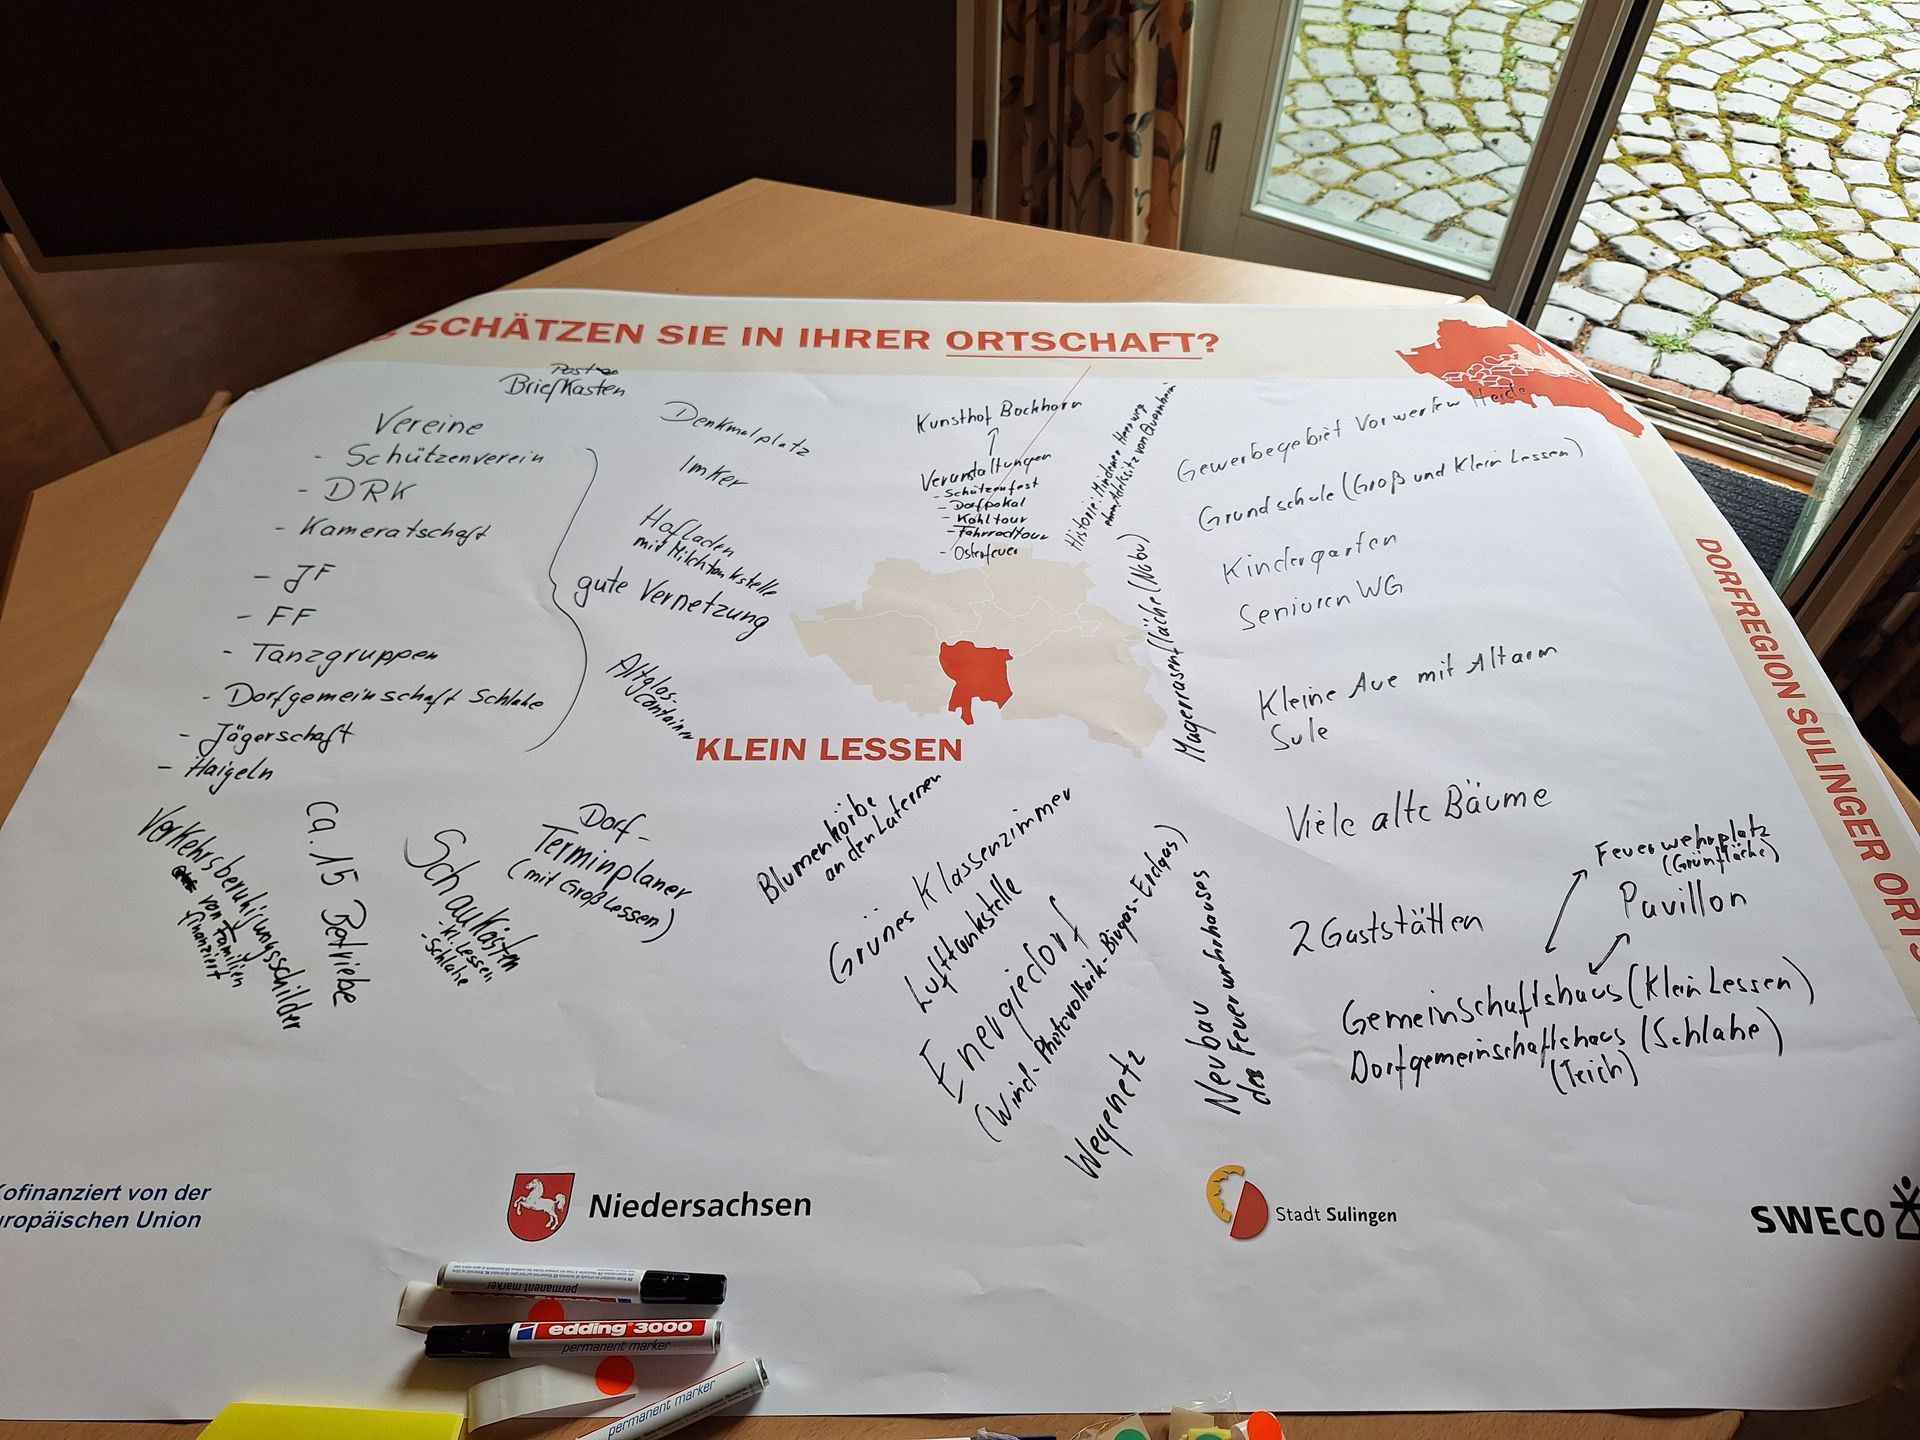 SCHÄTZEN SIE IN IHRER ORTSCHAFT?
Post
Briefkasten
Vereine
- Schützenverein
- DRK
- Kameratschaft
- JF
- FF
- Tanzgruppen
- Dorfgemeinschaft Schlahe
- Jägerschaft
- Haigeln
Denkmalplatz
Imker
Hofladen
mit Milchtankstelle
gute Vernetzung
Altglas
Container
Kunsthof Bockhorn
Veranstaltungen
- Schützenfest
- Dorfpokal
- Kohltour
- Fahrradtour
- Osterfeuer
Historie: Mindener Heerweg
ehem. Adelssitz von Quernheim
Magerrasenfläche (Nabu)
Gewerbegebiet Vorwerker Heide
Grundschule (Groß und Klein Lessen)
Kindergarten
Senioren WG
Kleine Aue mit Altarm
Sule
Viele alte Bäume
2 Gaststätten
Feuerwehrplatz
(Grünfläche)
Pavillon
Gemeinschaftshaus (Klein Lessen)
Dorfgemeinschaftshaus (Schlahe)
(Teich)
KLEIN LESSEN
Verkehrsberuhigungsschilder
von Familien
finanziert
ca. 15 Betriebe
Schaukästen
- Kl. Lessen
- Schlahe
Dorf-
Terminplaner
(mit Groß Lessen)
Blumenkörbe
an den Laternen
Grünes Klassenzimmer
Lufttankstelle
Energiedorf
(Wind-Photovoltaik-Biogas-Erdgas)
Wegenetz
Neubau
des Feuerwehrhauses
DORFREGION SULINGER ORTS
Kofinanziert von der
uropäischen Union
Niedersachsen
Stadt Sulingen
SWECO
permanent marker
edding 3000
permanent marker
permanent marker